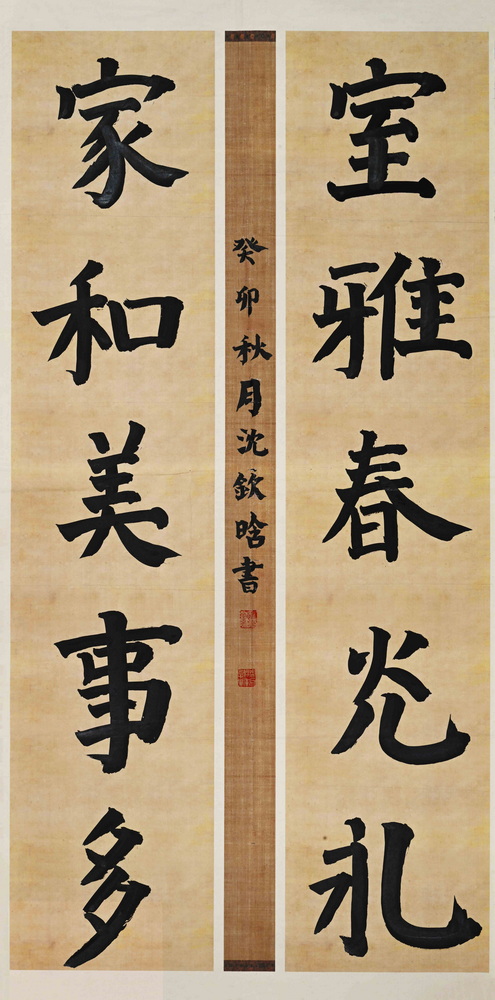 室雅春光礼
癸卯秋月沈欽晗書
家和美事多